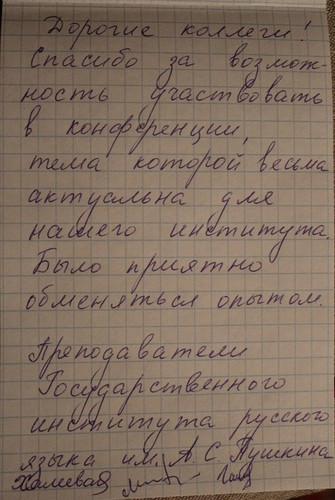 Дорогие коллеги!
Спасибо за возмож-
ность участвовать
в конференции,
тема которой весьма
актуальна для
нашего института.
Было приятно
обменяться опытом.
Преподаватели
Государственного
института русского
языка им. А.С. Пушкина